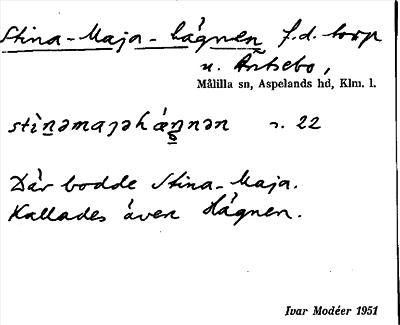 Stina-Maja-hägnen f.d. torp
u. Äntsebo,
Målilla sn, Aspelands hd, Klm. l.
stìnəmaȷəhǽŋnən r. 22
Där bodde Stina-Maja.
Kallades även Hägnen.
Ivar Modéer 1951